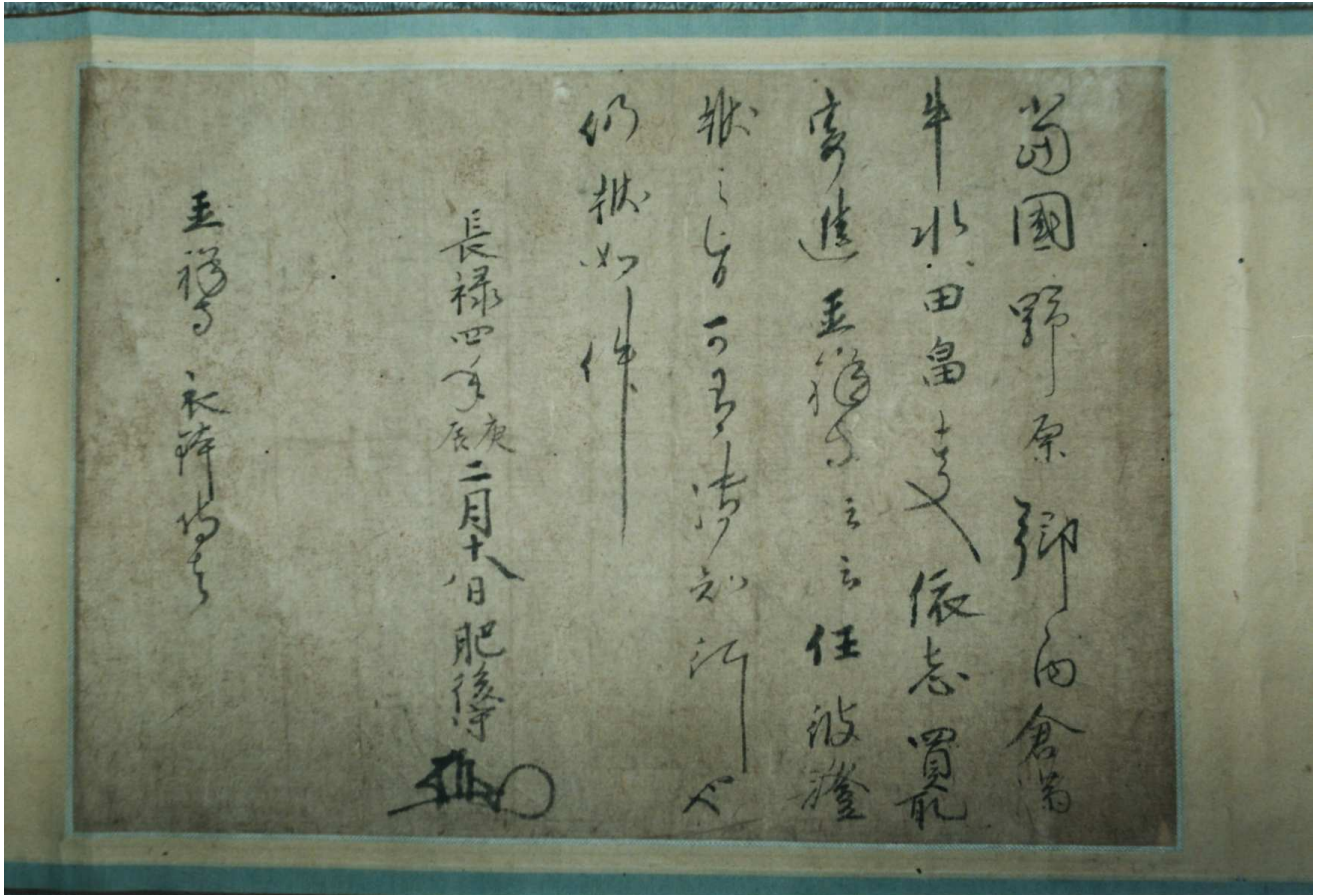 當國野原郷内倉満
牛水田畠事依志買取
寄進玉祥寺云々任彼證
状之旨可有御知行也
仍状如件
長禄四年庚辰二月十八日肥後守
玉祥寺衣鉢侍者